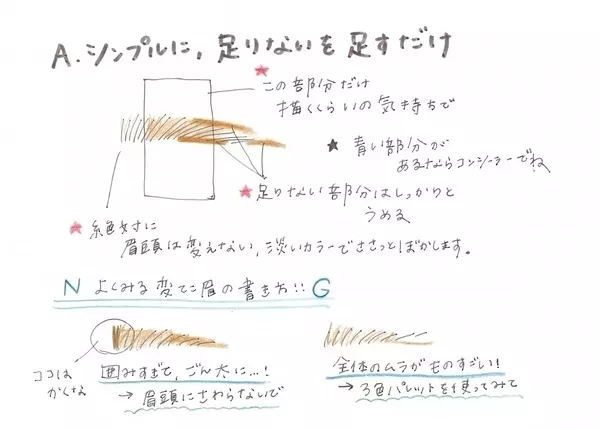 A. シンプルに, 足りないを足すだけ
★ この部分だけ
描くくらいの気持ちで
★ 青い部分が
あるならコンシーラーでね
★ 足りない部分はしっかりと
うめる
★ 絶対に
眉頭は変えない, 淡いカラーでささっとぼかします。
N よくみる変てこ眉の書き方!! G
ココは
かくな
囲みすぎて, ごん太に…!
→ 眉頭にさわらないで
全体のムラがものすごい!
→ 3色パレットを使ってみて